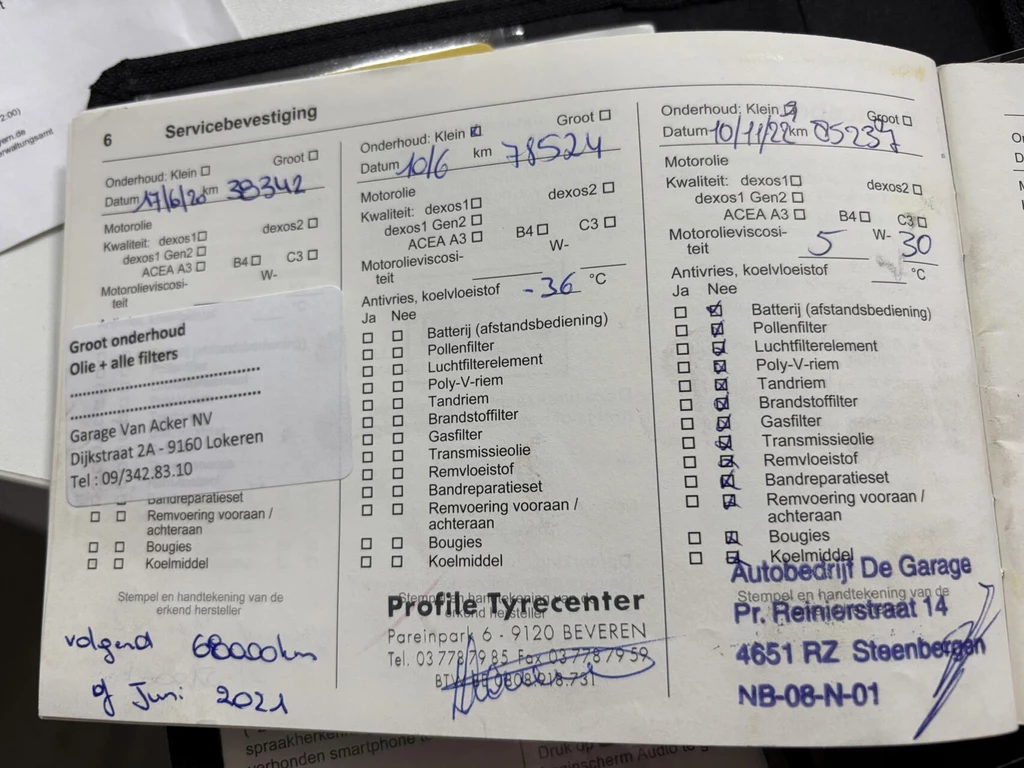 6 Servicebevestiging
Onderhoud: Klein ☐ Groot ☐
Datum 17/6/20 km 38342
Motorolie
Kwaliteit: dexos1 ☐ dexos2 ☐
dexos1 Gen2 ☐
ACEA A3 ☐ B4 ☐ C3 ☐
Motorolieviscosi- W-
teit
Groot onderhoud
Olie + alle filters
Garage Van Acker NV
Dijkstraat 2A - 9160 Lokeren
Tel : 09/342.83.10
☐ ☐ Bandreparatieset
☐ ☐ Remvoering vooraan /
achteraan
☐ ☐ Bougies
☐ ☐ Koelmiddel
Stempel en handtekening van de
erkend hersteller
volgend 68000km
of Juni 2021
Onderhoud: Klein ☑ Groot ☐
Datum 10/6 km 78524
Motorolie
Kwaliteit: dexos1 ☐ dexos2 ☐
dexos1 Gen2 ☐
ACEA A3 ☐ B4 ☐ C3 ☐
Motorolieviscosi- W-
teit
Antivries, koelvloeistof -36 °C
Ja Nee
☐ ☐ Batterij (afstandsbediening)
☐ ☐ Pollenfilter
☐ ☐ Luchtfilterelement
☐ ☐ Poly-V-riem
☐ ☐ Tandriem
☐ ☐ Brandstoffilter
☐ ☐ Gasfilter
☐ ☐ Transmissieolie
☐ ☐ Remvloeistof
☐ ☐ Bandreparatieset
☐ ☐ Remvoering vooraan /
achteraan
☐ ☐ Bougies
☐ ☐ Koelmiddel
Stempel en handtekening van de
erkend hersteller
Profile Tyrecenter
Pareinpark 6 - 9120 BEVEREN
Tel. 03 778 79 85 Fax 03 778 79 59
Onderhoud: Klein Groot ☐
Datum 10/11/22 km 85237
Motorolie
Kwaliteit: dexos1 ☐ dexos2 ☐
dexos1 Gen2 ☐
ACEA A3 ☐ B4 ☐ C3 ☐
Motorolieviscosi- 5 W- 30
teit
Antivries, koelvloeistof °C
Ja Nee
☐ ☑ Batterij (afstandsbediening)
☐ ☑ Pollenfilter
☐ ☑ Luchtfilterelement
☐ ☑ Poly-V-riem
☐ ☑ Tandriem
☐ ☑ Brandstoffilter
☐ ☑ Gasfilter
☐ ☑ Transmissieolie
☐ ☑ Remvloeistof
☐ ☑ Bandreparatieset
☐ ☑ Remvoering vooraan /
achteraan
☐ ☑ Bougies
☐ ☑ Koelmiddel
Stempel en handtekening van de
erkend hersteller
Autobedrijf De Garage
Pr. Reinierstraat 14
4651 RZ Steenbergen
NB-08-N-01